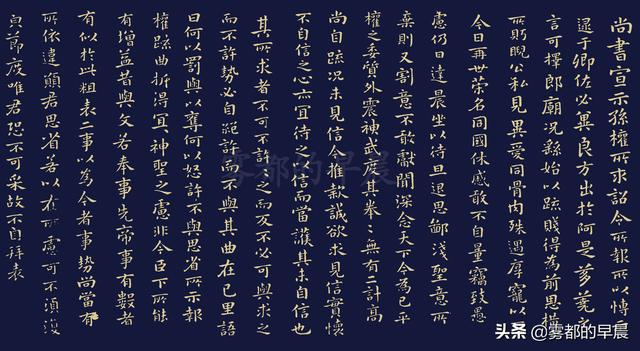 尚書宣示孫權所求詔令所報所以博示
逮于卿佐必冀良方出於阿是芻蕘之
言可擇郎廟況繇始以疏賤得為前恩橫
所盻睨公私見異愛同骨肉殊遇厚寵以
今日再世榮名同國休慼敢不自量竊致愚
慮仍日達晨坐以待旦退思鄙淺聖意所
棄則又割意不敢獻聞深念天下今為已平
權之委質外震神武度其拳拳無有二計高
尚自疏況未見信今推款誠欲求見信實懷
不自信之心亦宜待之以信而當護其未自信也
其所求者不可不許許之而反不必可與求之
而不許勢必自絕許而不與其曲在己里語
曰何以罰與以奪何以怒許不與思省所示報
權疏曲折得宜神聖之慮非今臣下所能
有增益昔與文若奉事先帝事有數者
有似於此粗表二事以為今者事勢尚當有
所依違願君思省若以在所慮可不須復
皃節度唯君恐不可采故不自拜表
雾都的早晨
头条 @雾都的早晨